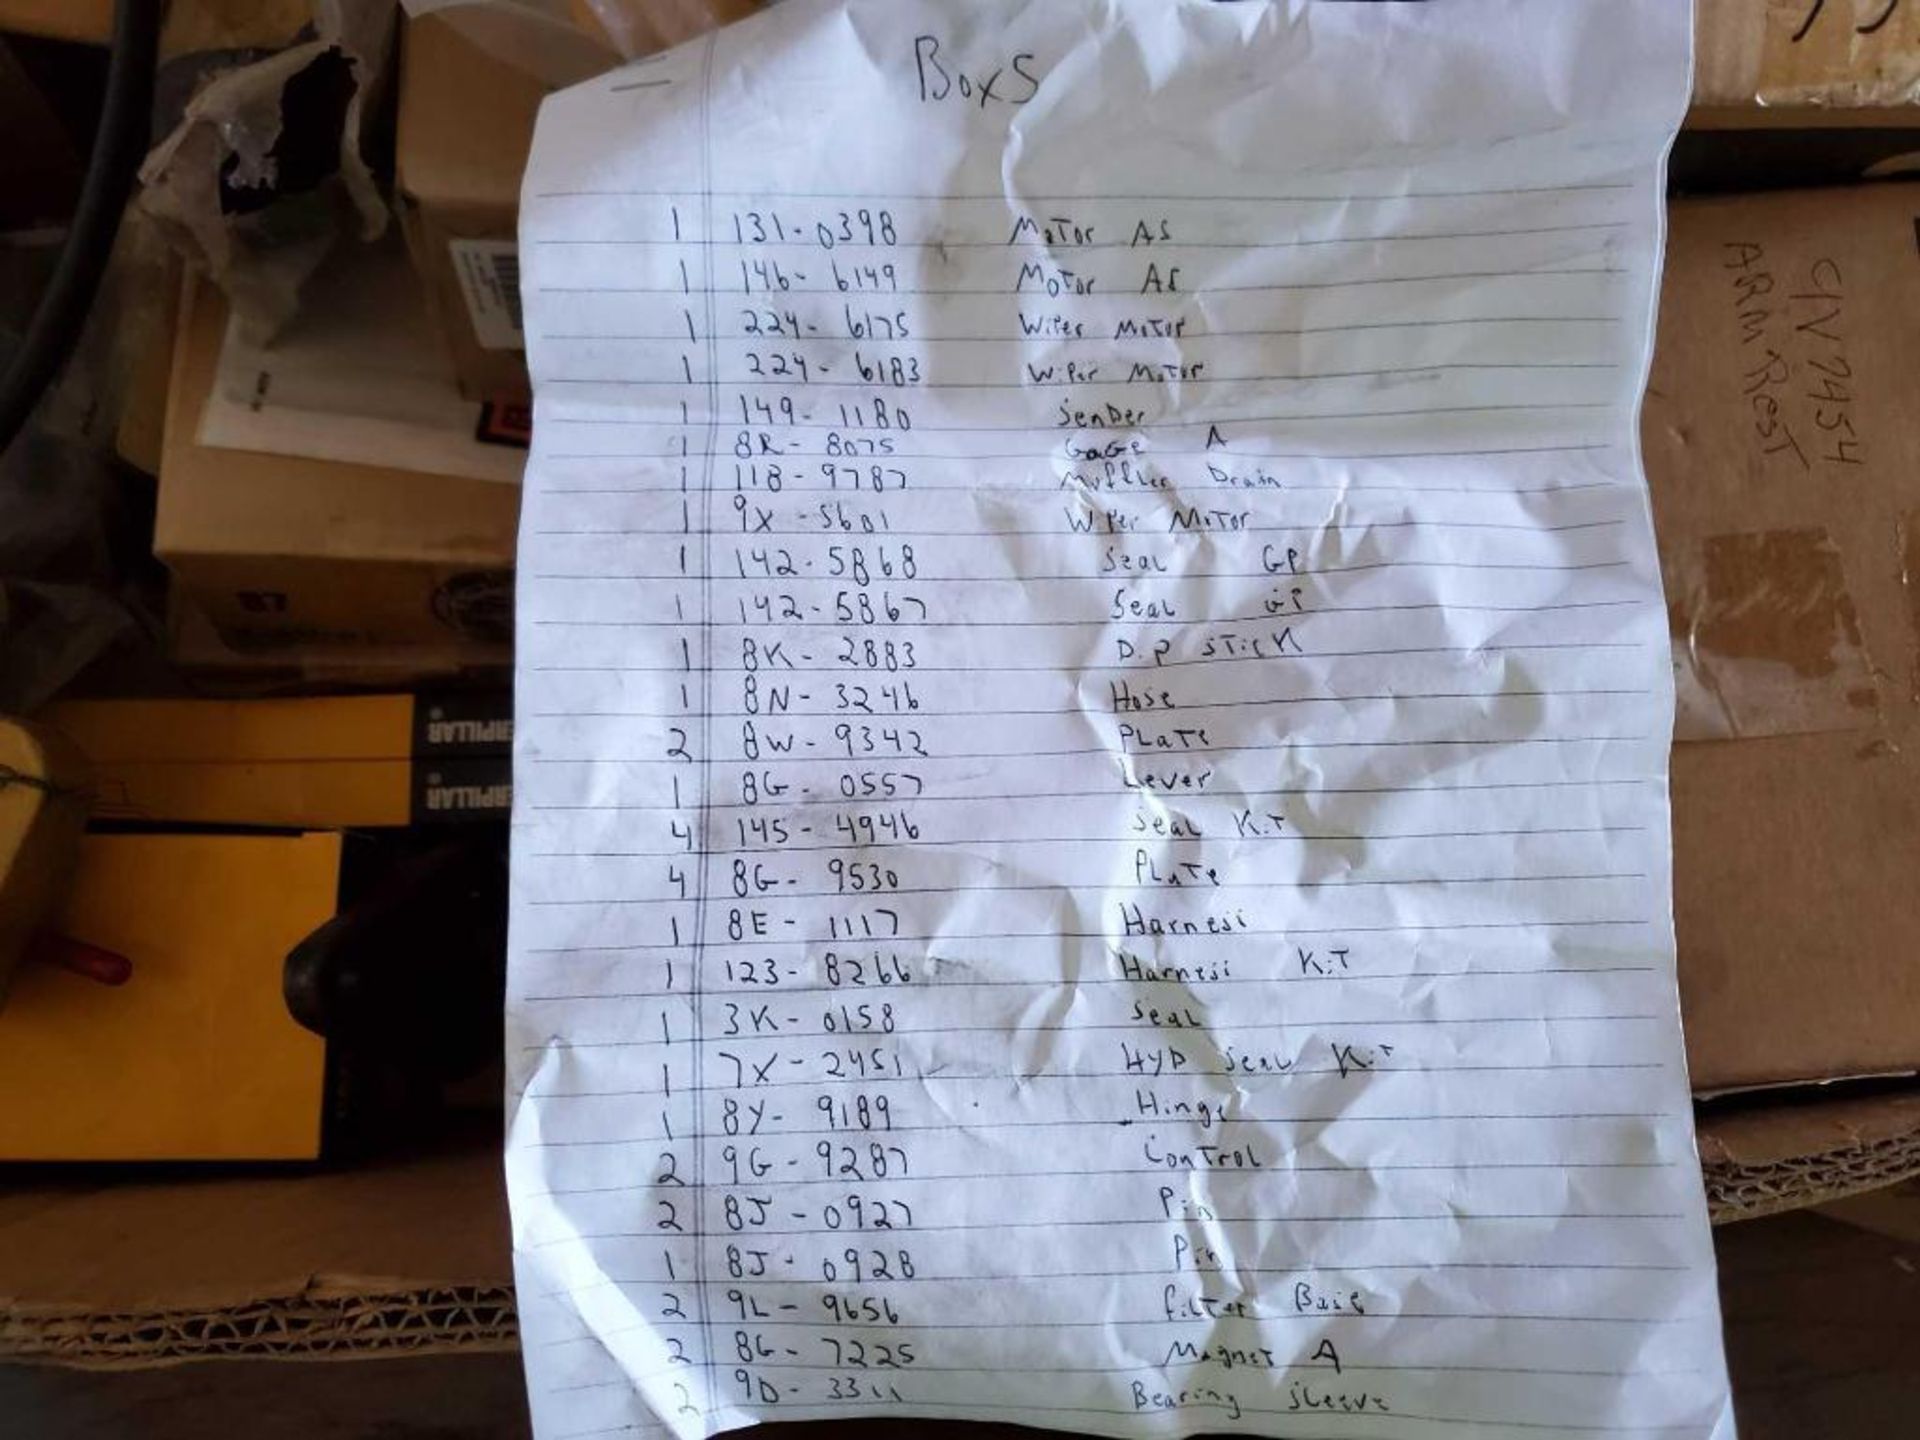 Box 5
1 131-0398 Motor AS
1 146-6149 Motor AS
1 224-6175 Wiper Motor
1 224-6183 Wiper Motor
1 149-1180 Sender
1 8R-8075 Gage A
1 118-9787 Muffler Drain
1 9X-5601 Wiper Motor
1 142-5868 Seal GP
1 142-5867 Seal GP
1 8K-2883 Dip Stick
1 8N-3246 Hose
2 8W-9342 Plate
1 8G-0557 Lever
4 145-4946 Seal Kit
4 8G-9530 Plate
1 8E-1117 Harness
1 123-8266 Harness Kit
1 3K-0158 Seal
1 7X-2451 HYD Seal Kit
1 8Y-9189 Hinge
2 9G-9287 Control
2 8J-0927 Pin
1 8J-0928 Pin
2 9L-9656 Filter Base
2 8G-7225 Magnet A
2 9D-3311 Bearing Sleeve
CIV7454
ARM REST
ERPILLAR
ERPILLAR